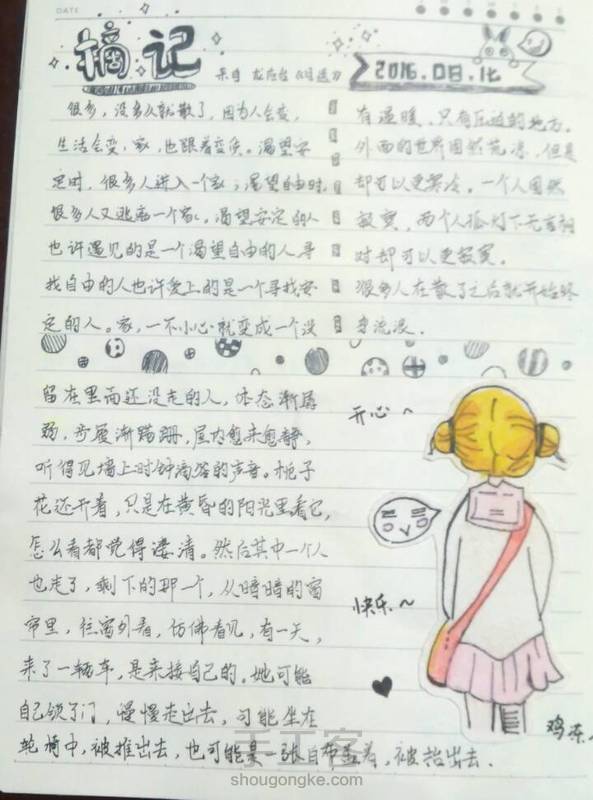 DATE
摘记
来自 龙应台《目送》
2016.08.16
很多，没多久就散了，因为人会变，
生活会变，家，也跟着变质。渴望安
定时，很多人进入一个家；渴望自由时，
很多人又逃离一个家。渴望安定的人
也许遇见的是一个渴望自由的人，寻
找自由的人也许爱上的是一个寻找安
定的人。家，一不小心就变成一个没
有温暖，只有压迫的地方。
外面的世界固然荒凉，但是
却可以更寒冷。一个人固然
寂寞，两个人孤灯下无言相
对却可以更寂寞。
很多人在散了之后就开始终
身流浪。
留在里面还没走的人，体态渐孱
弱，步履渐蹒跚，屋内愈来愈静，
听得见墙上时钟滴答的声音。栀子
花还开着，只是在黄昏的阳光里看它，
怎么看都觉得凄清。然后其中一个人
也走了，剩下的那一个，从暗暗的窗
帘里，往窗外看，仿佛看见，有一天，
来了一辆车，是来接自己的。她可能
自己锁了门，慢慢走出去，可能坐在
轮椅中，被推出去，也可能是一张白布盖着，被抬出去.
开心~
快乐~
鸡冻~
手工客
shougongke.com